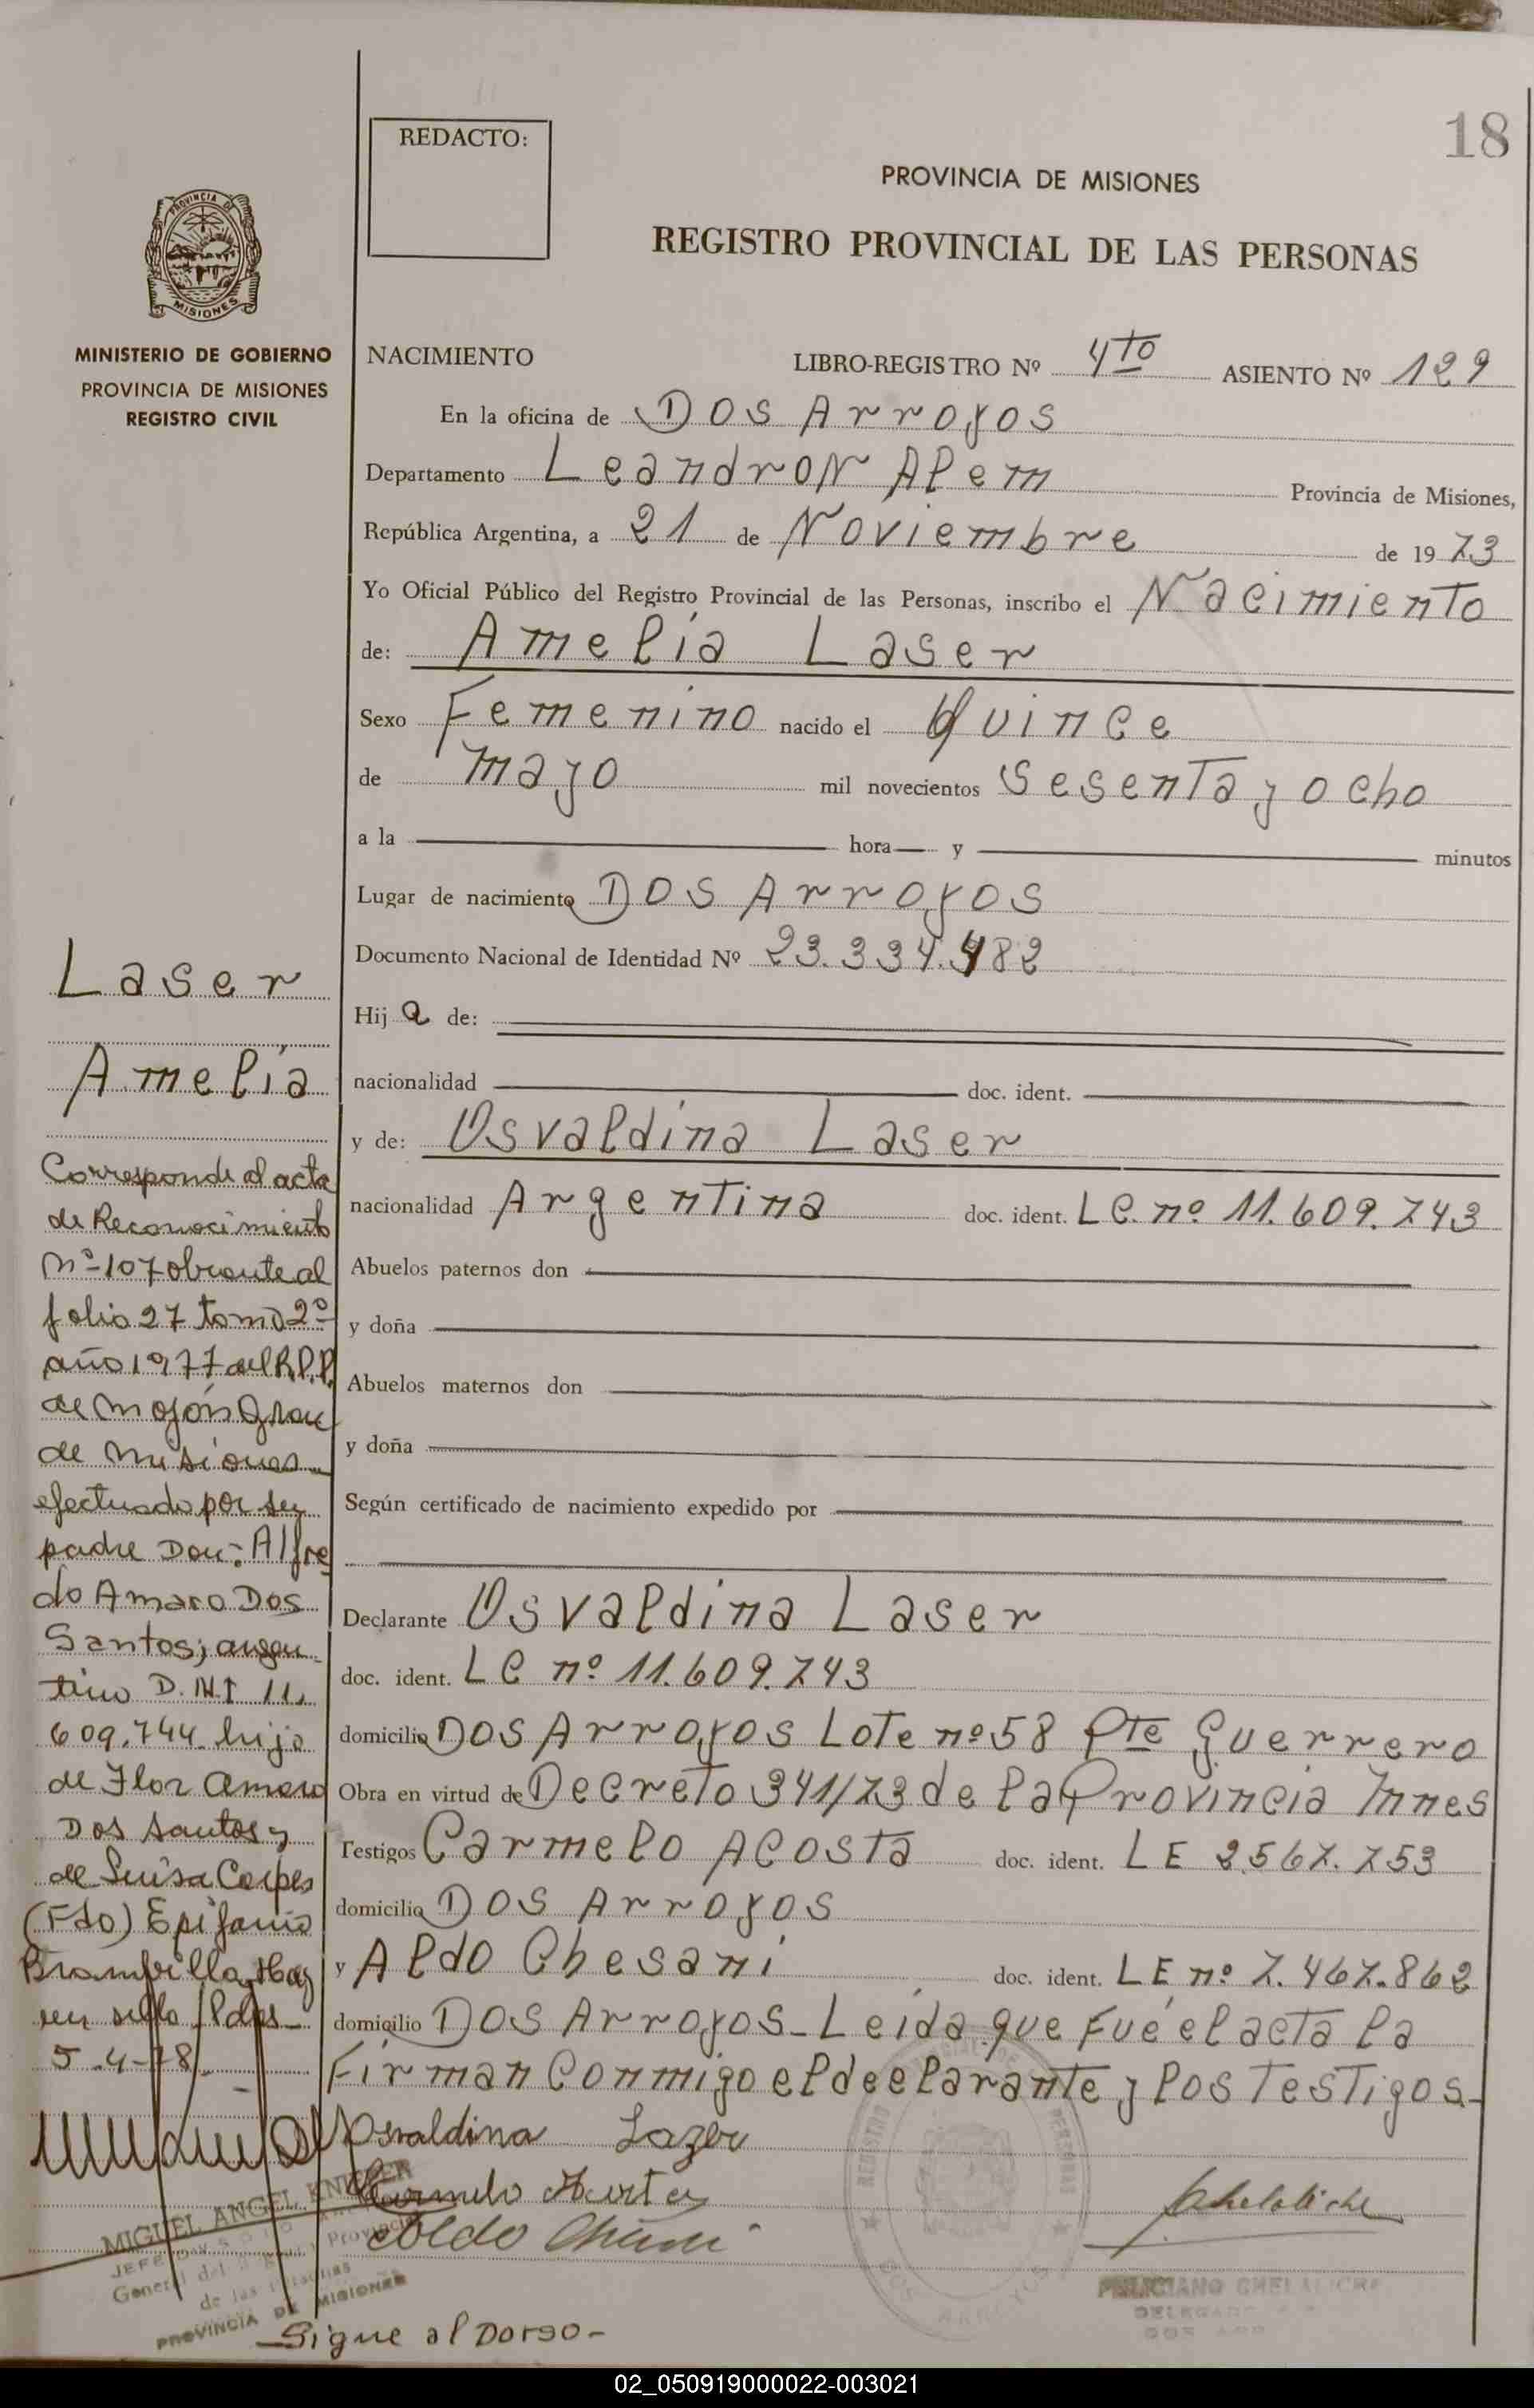 18
REDACTO:
PROVINCIA DE MISIONES
REGISTRO PROVINCIAL DE LAS PERSONAS
PROVINCIA DE
MISIONES
MINISTERIO DE GOBIERNO
PROVINCIA DE MISIONES
REGISTRO CIVIL
NACIMIENTO LIBRO-REGISTRO Nº 4to ASIENTO Nº 129
En la oficina de Dos Arroyos
Departamento Leandro N Alem Provincia de Misiones,
República Argentina, a 21 de Noviembre de 1973
Yo Oficial Público del Registro Provincial de las Personas, inscribo el Nacimiento
de: Amelia Laser
Sexo Femenino nacido el Quince
de mayo mil novecientos Sesenta y ocho
a la hora y minutos
Lugar de nacimiento Dos Arroyos
Documento Nacional de Identidad Nº 23.334.482
Hija de:
nacionalidad doc. ident.
y de: Osvaldina Laser
nacionalidad Argentina doc. ident. LC. nº 11.609.743
Abuelos paternos don
y doña
Abuelos maternos don
y doña
Según certificado de nacimiento expedido por
Declarante Osvaldina Laser
doc. ident. LC nº 11.609.743
domicilio Dos Arroyos Lote nº 58 Pte Guerrero
Obra en virtud de Decreto 341/73 de la Provincia Mnes
Testigos Carmelo Acosta doc. ident. LE 2.567.753
domicilio Dos Arroyos
y Aldo Chesani doc. ident. LE nº 7.467.862
domicilio Dos Arroyos - Leída que Fué el acta la
Firman Conmigo el declarante y los Testigos-
Osvaldina Lazer
Laser
Amelia
Corresponde al acta
de Reconocimiento
Nº 107 obrante al
folio 27 tomo 2º
año 1977 del R.P.P.
de Mojón Gran
de Misiones
efectuado por su
padre Don: Alfre
do Amaro Dos
Santos; argen-
tino D.N.I 11.
609.744 hijo
de Flor Amaro
Dos Santos y
de Luisa Corpes
(Fdo) Epifanio
Brambilla. Hay
un sello Pdas-
5-4-78
MIGUEL ANGEL KNIEFER
General del Provincial
de las Personas
PROVINCIA DE MISIONES
Sigue al Dorso-
REGISTRO PERSONAS
FELICIANO
DELEGADO
DOS ARR
02_050919000022-003021